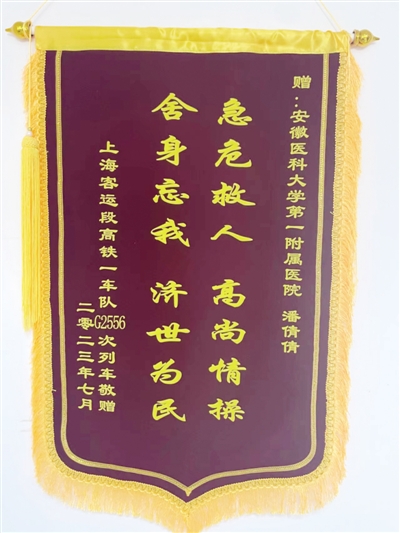 赠：安徽医科大学第一附属医院 潘倩倩
急危救人 高尚情操
舍身忘我 济世为民
上海客运段高铁一车队G2556次列车敬赠
二零二三年七月